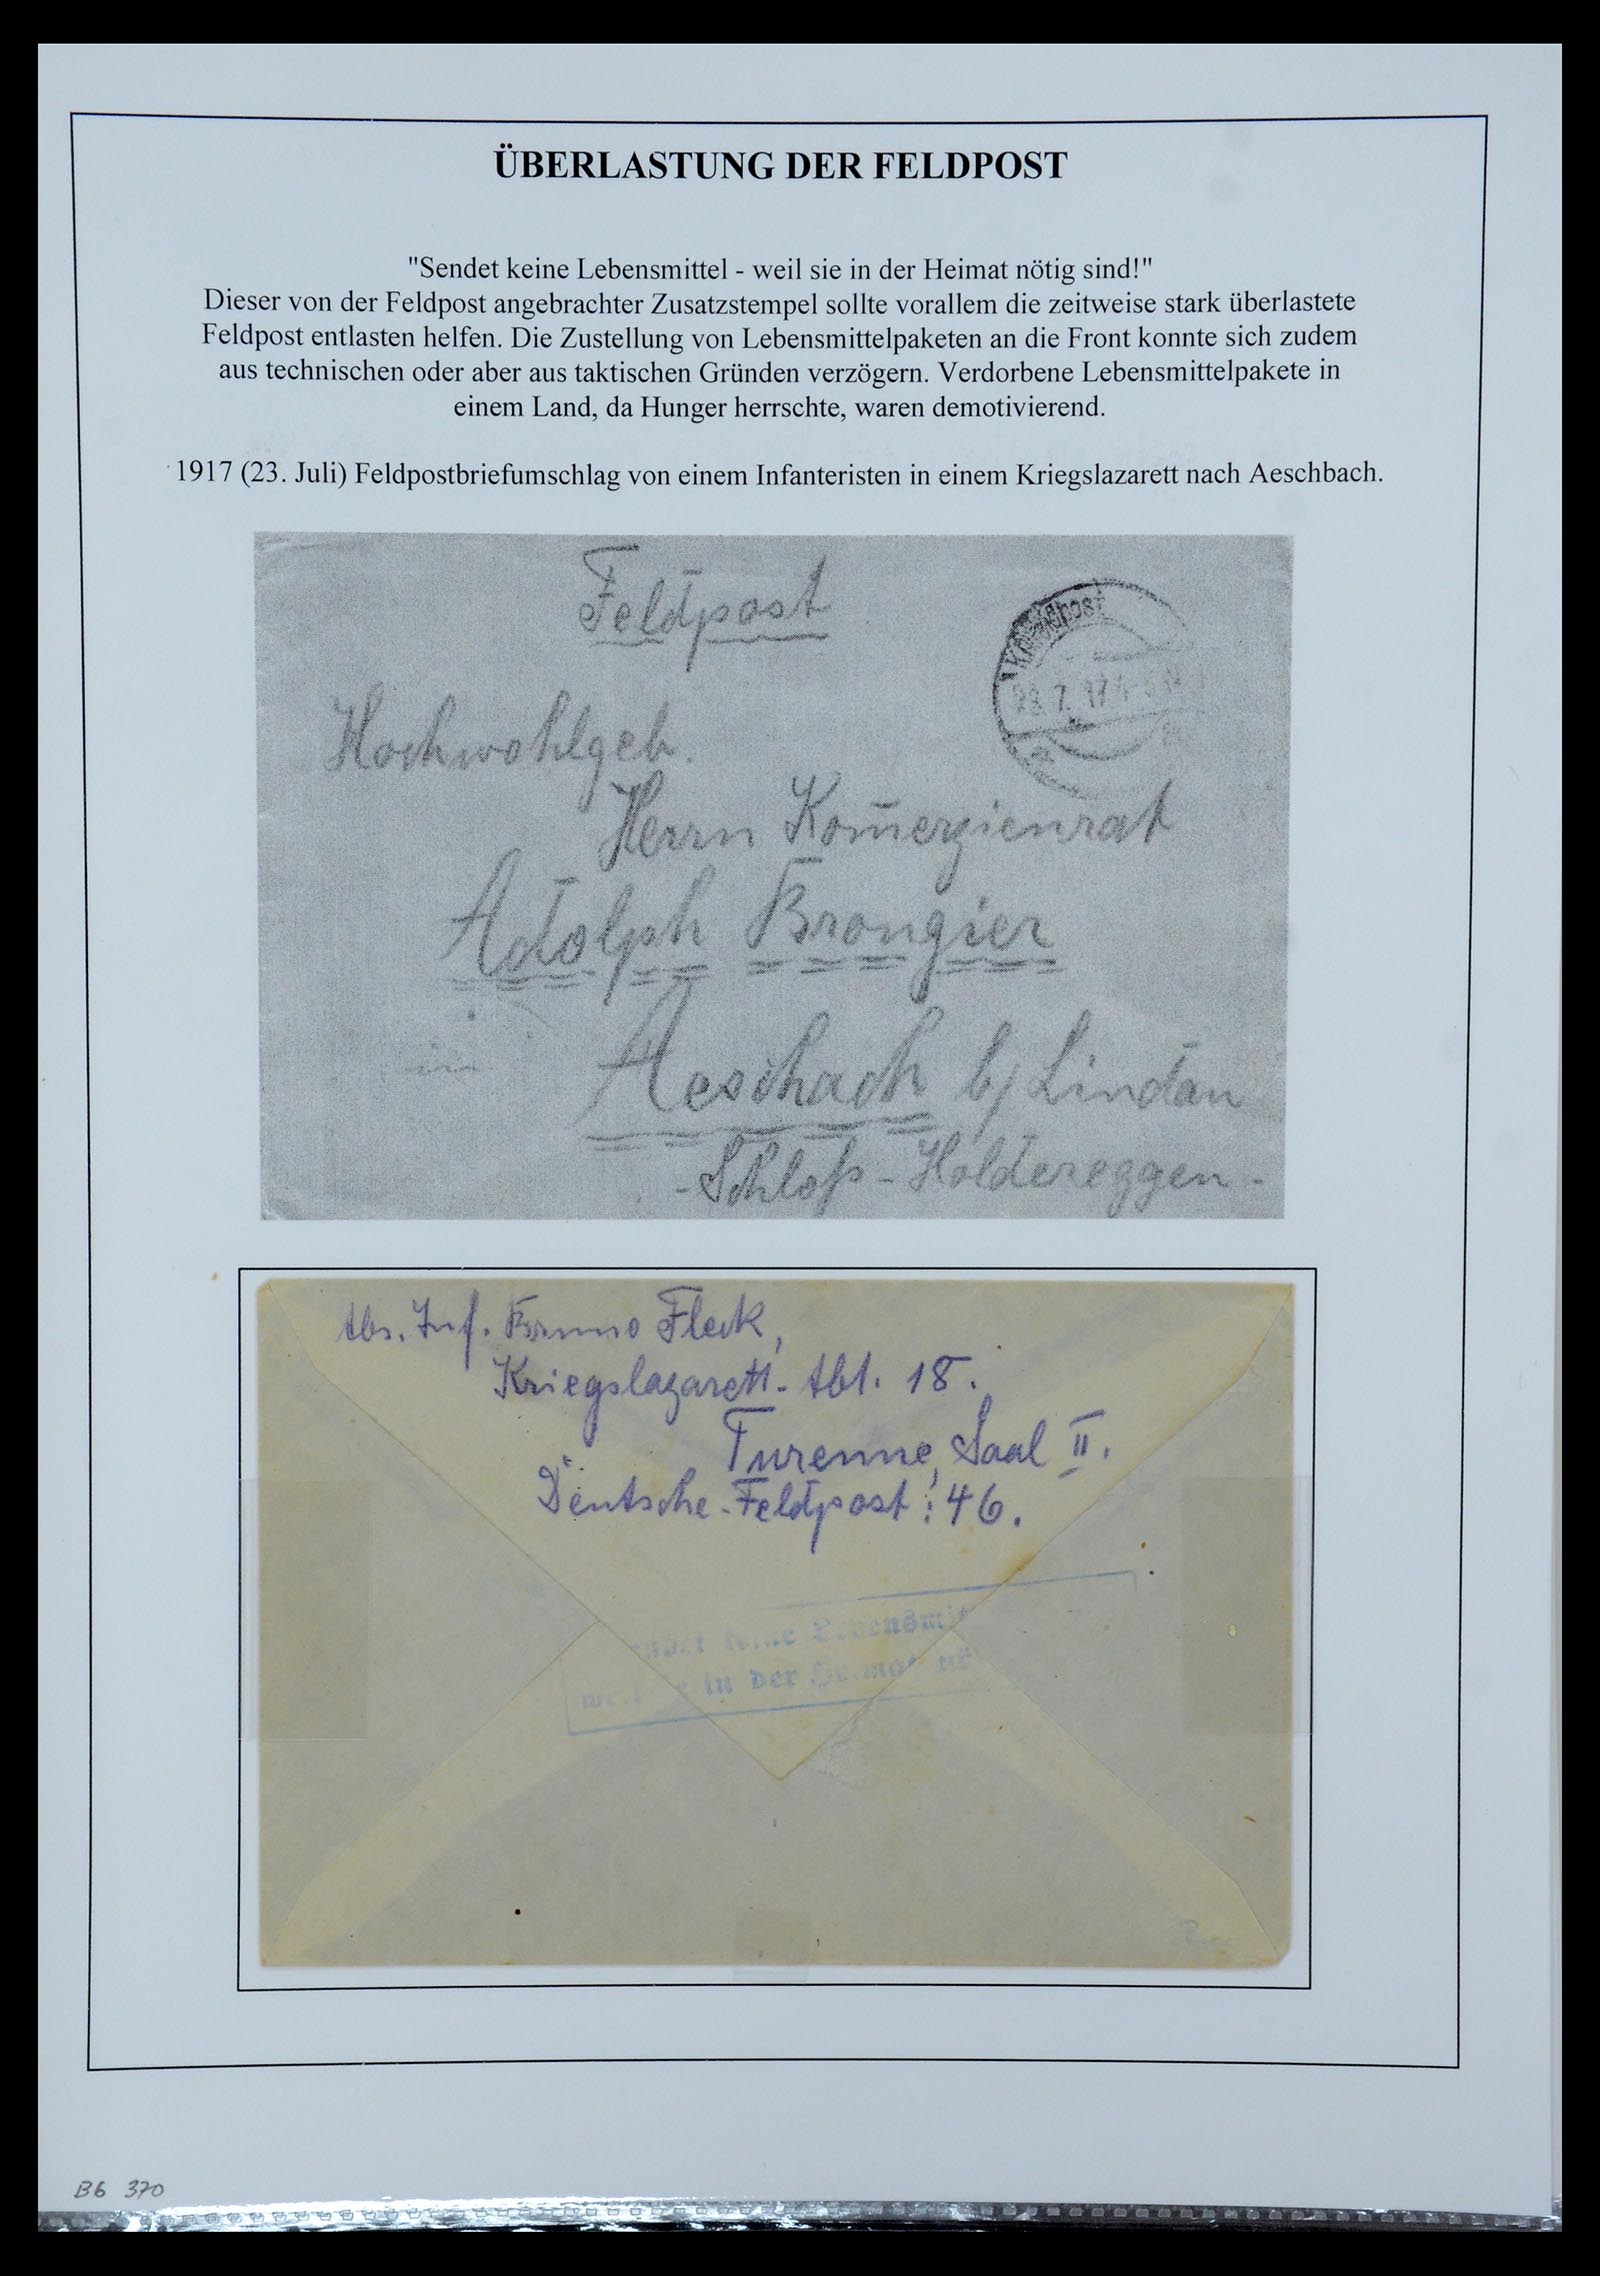 ÜBERLASTUNG DER FELDPOST
"Sendet keine Lebensmittel - weil sie in der Heimat nötig sind!"
Dieser von der Feldpost angebrachter Zusatzstempel sollte vorallem die zeitweise stark überlastete
Feldpost entlasten helfen. Die Zustellung von Lebensmittelpaketen an die Front konnte sich zudem
aus technischen oder aber aus taktischen Gründen verzögern. Verdorbene Lebensmittelpakete in
einem Land, da Hunger herrschte, waren demotivierend.
1917 (23. Juli) Feldpostbriefumschlag von einem Infanteristen in einem Kriegslazarett nach Aeschbach.
Feldpost
7. 17
Hochwohlgeb.
Herrn Kom̄erzienrat
Adolph Brougier
in Aeschach b/ Lindau
- Schloß - Holdereggen -
Abs. Inf. Bruno Fleck,
Kriegslazarett - Abt. 18.
Turenne, Saal II.
Deutsche - Feldpost : 46.
keine Lebensmit
in der Heimat nö
B6 370